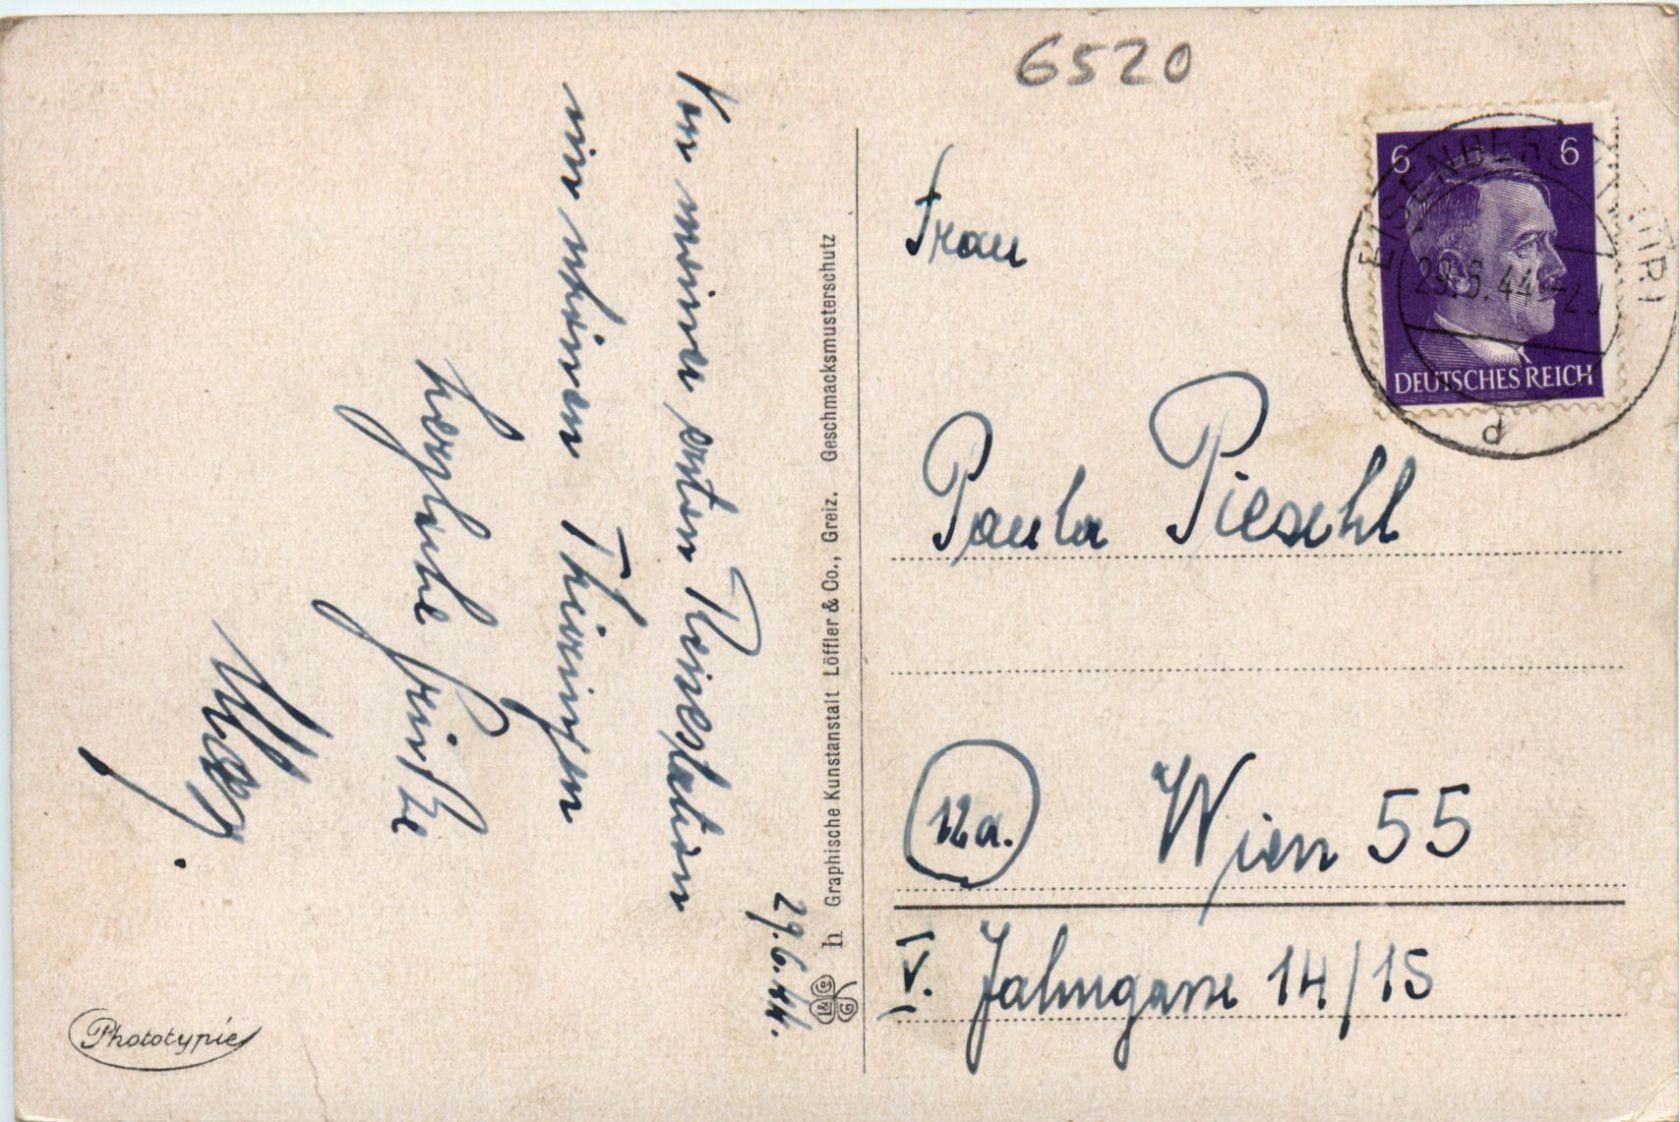 6520
6 6
DEUTSCHES REICH
EISENBERG (THÜR)
29.6.44
d
29.6.44.
Von meiner ersten Reisestation
im schönen Thüringen
herzliche Grüße
Frau
Paula Pieschl
12a. Wien 55
V. Jahngasse 14/15
h Graphische Kunstanstalt Löffler & Co., Greiz. Geschmacksmusterschutz
L&C G
Phototypie